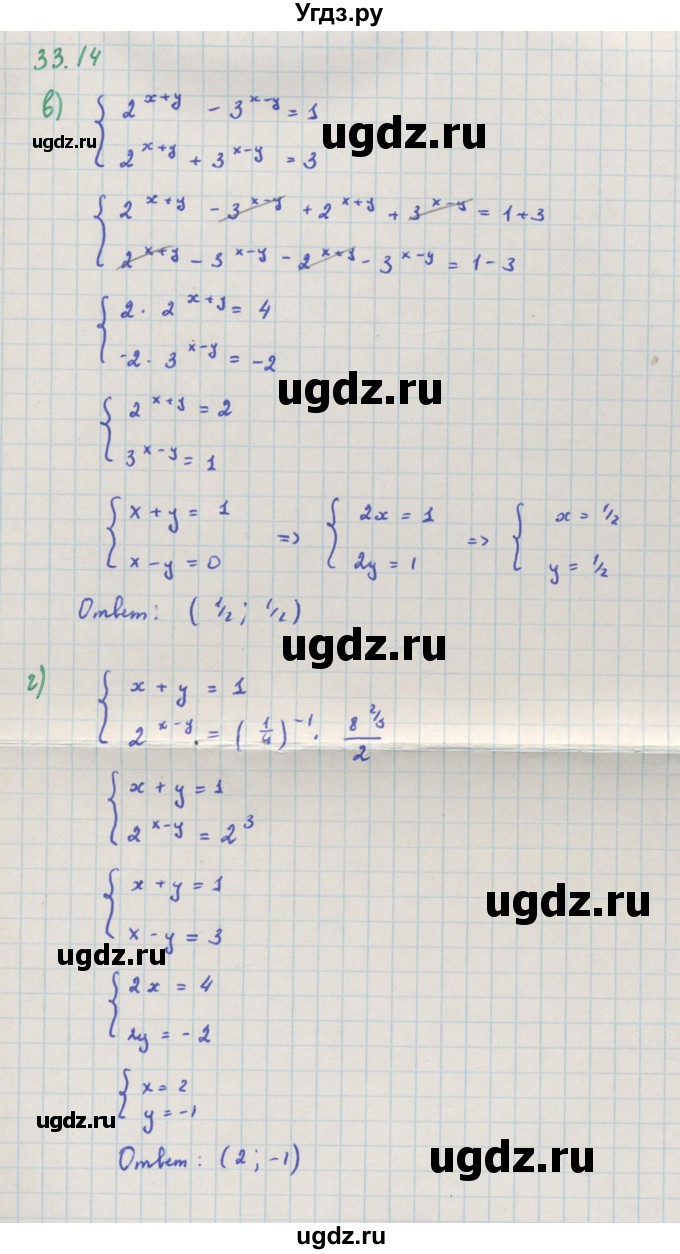 Угдз.ру
33.14
в) { 2^(x+y) - 3^(x-y) = 1
ugdz.ru ugdz.ru
2^(x+y) + 3^(x-y) = 3
{ 2^(x+y) - 3^(x-y) + 2^(x+y) + 3^(x-y) = 1+3
2^(x+y) - 3^(x-y) - 2^(x+y) - 3^(x-y) = 1-3
{ 2 · 2^(x+y) = 4
-2 · 3^(x-y) = -2
ugdz.ru
{ 2^(x+y) = 2
3^(x-y) = 1
{ x + y = 1 => { 2x = 1 => { x = 1/2
x - y = 0 2y = 1 y = 1/2
Ответ: (1/2; 1/2)
ugdz.ru
г) { x + y = 1
2^(x-y) = (1/4)^(-1) · 8^(2/3)/2
{ x + y = 1
2^(x-y) = 2^3
{ x + y = 1
ugdz.ru
x - y = 3
ugdz.ru
{ 2x = 4
2y = -2
{ x = 2
y = -1
ugdz.ru
Ответ: (2; -1)
ugdz.ru
ugdz.ru